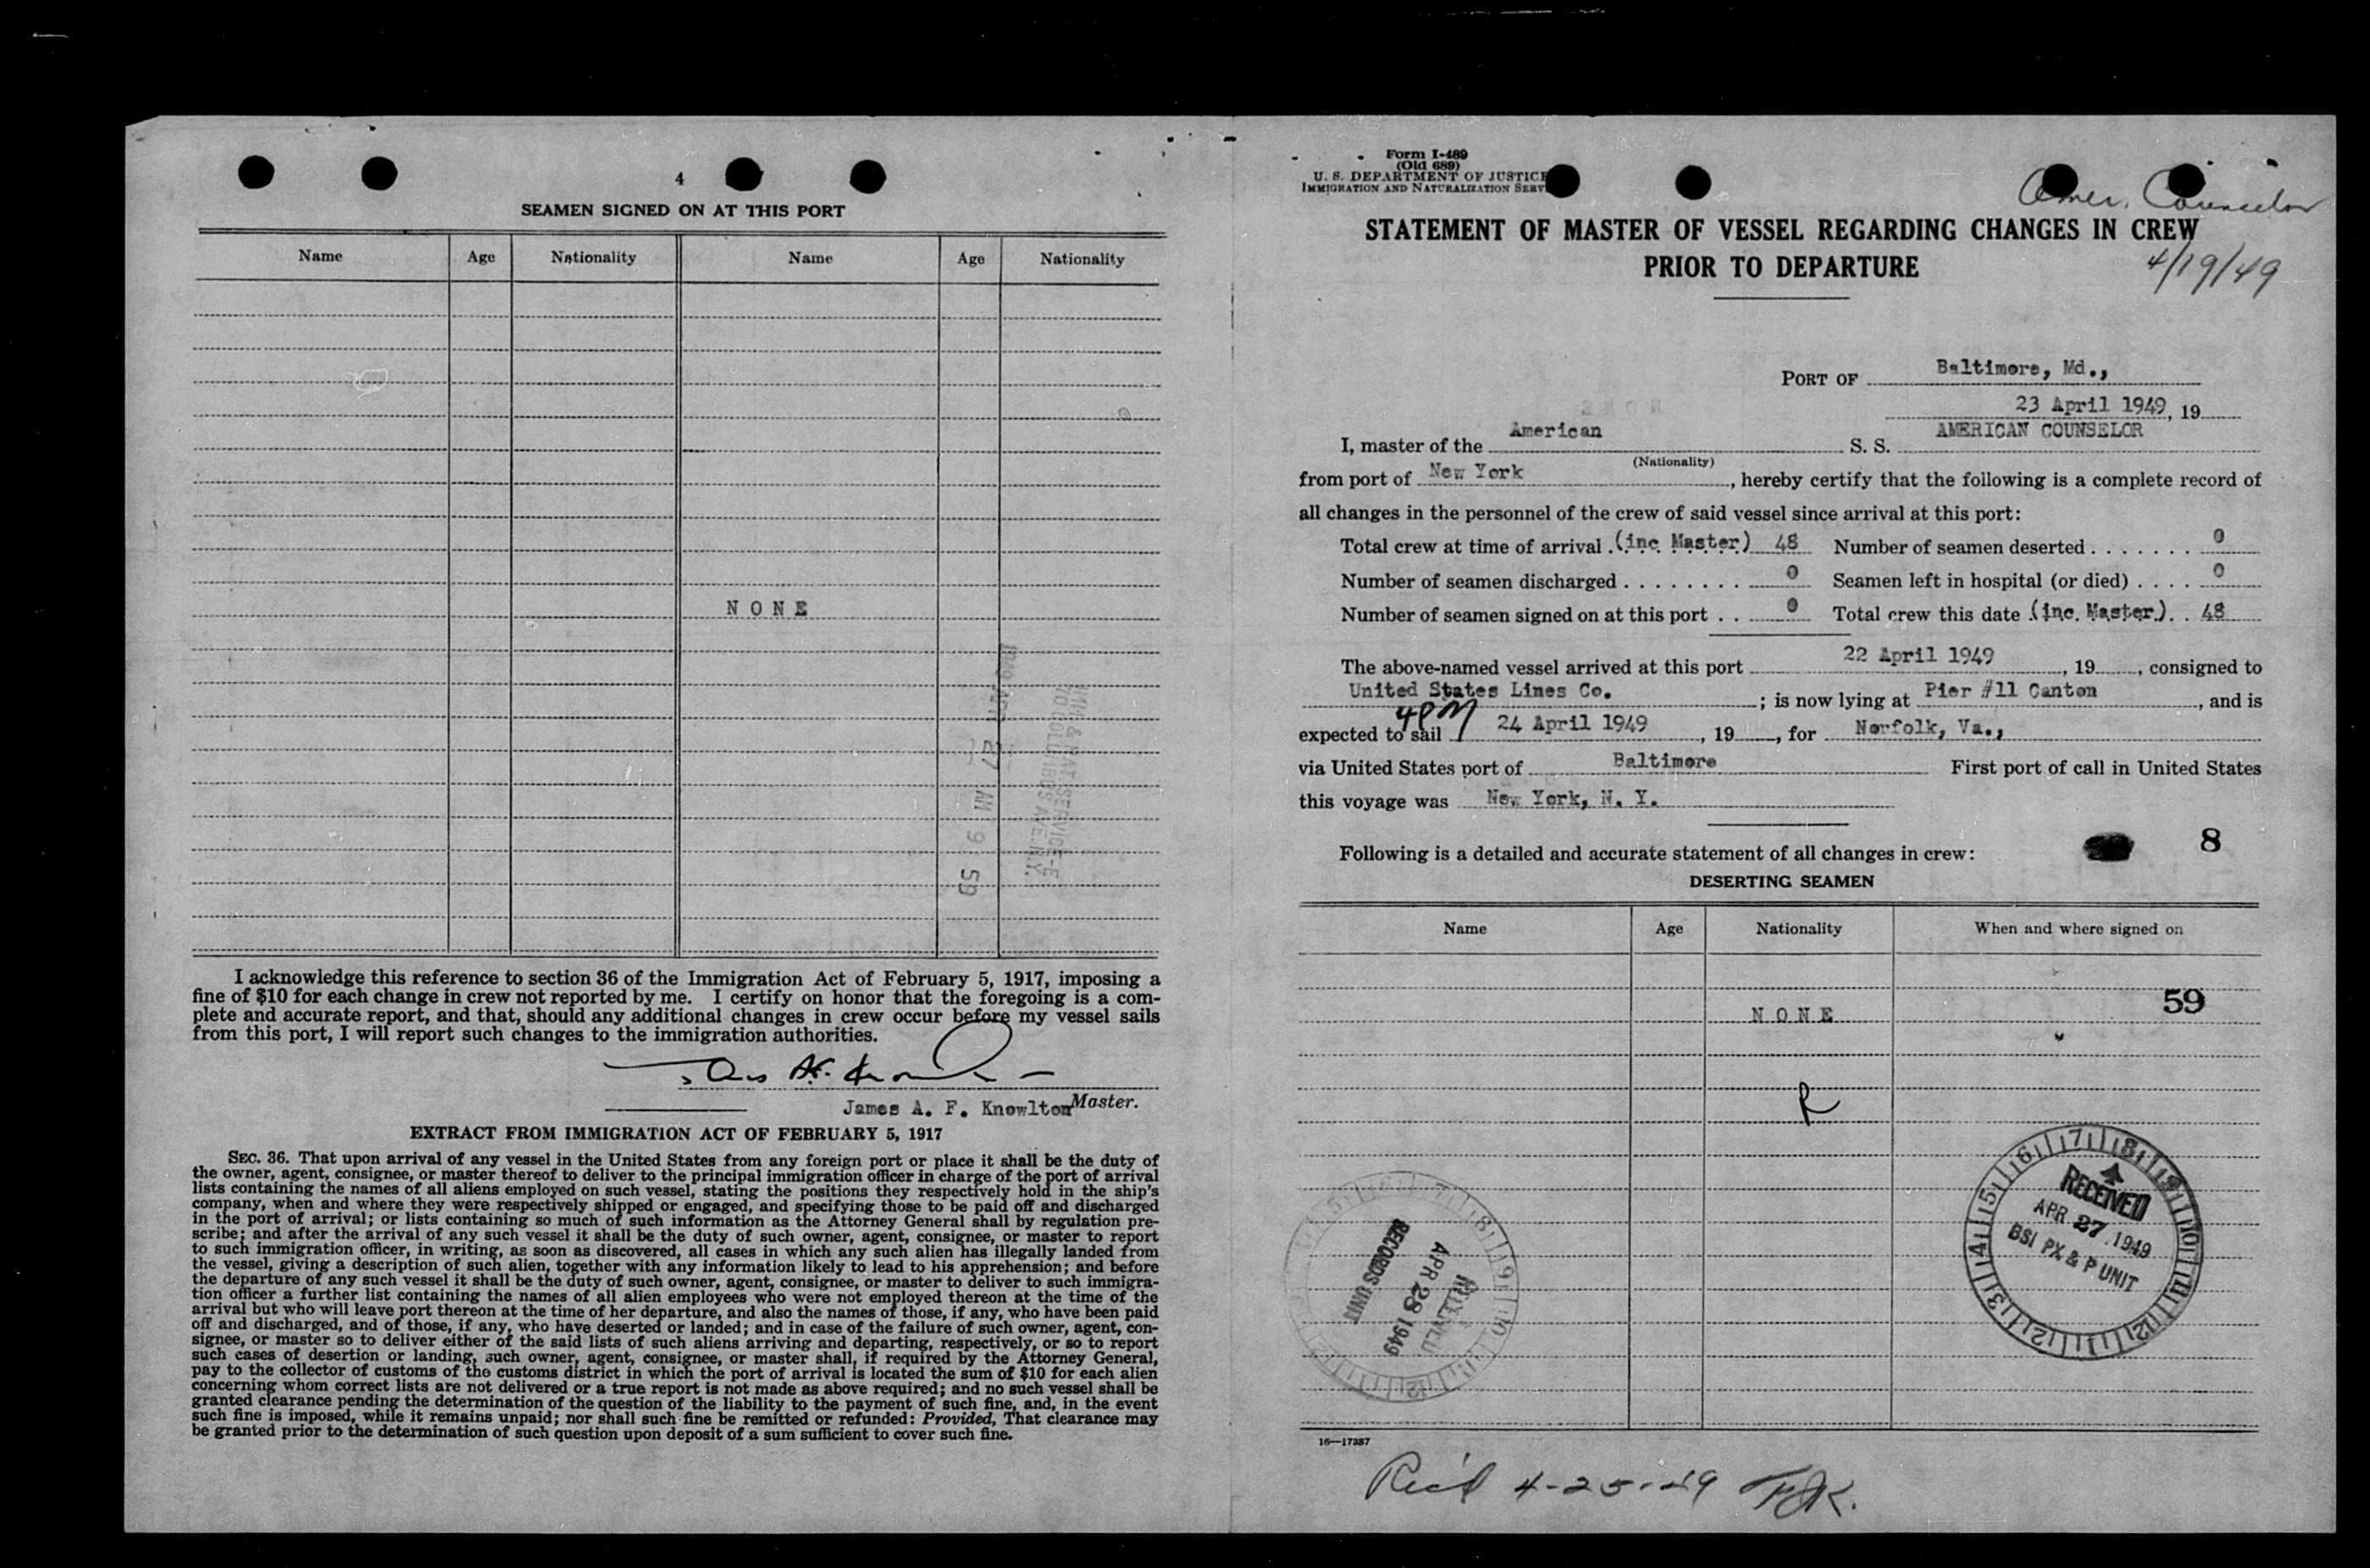 4
SEAMEN SIGNED ON AT THIS PORT
Name Age Nationality Name Age Nationality
NONE
I acknowledge this reference to section 36 of the Immigration Act of February 5, 1917, imposing a
fine of $10 for each change in crew not reported by me. I certify on honor that the foregoing is a com-
plete and accurate report, and that, should any additional changes in crew occur before my vessel sails
from this port, I will report such changes to the immigration authorities.
James A. F. Knowlton Master.
EXTRACT FROM IMMIGRATION ACT OF FEBRUARY 5, 1917
SEC. 36. That upon arrival of any vessel in the United States from any foreign port or place it shall be the duty of
the owner, agent, consignee, or master thereof to deliver to the principal immigration officer in charge of the port of arrival
lists containing the names of all aliens employed on such vessel, stating the positions they respectively hold in the ship's
company, when and where they were respectively shipped or engaged, and specifying those to be paid off and discharged
in the port of arrival; or lists containing so much of such information as the Attorney General shall by regulation pre-
scribe; and after the arrival of any such vessel it shall be the duty of such owner, agent, consignee, or master to report
to such immigration officer, in writing, as soon as discovered, all cases in which any such alien has illegally landed from
the vessel, giving a description of such alien, together with any information likely to lead to his apprehension; and before
the departure of any such vessel it shall be the duty of such owner, agent, consignee, or master to deliver to such immigra-
tion officer a further list containing the names of all alien employees who were not employed thereon at the time of the
arrival but who will leave port thereon at the time of her departure, and also the names of those, if any, who have been paid
off and discharged, and of those, if any, who have deserted or landed; and in case of the failure of such owner, agent, con-
signee, or master so to deliver either of the said lists of such aliens arriving and departing, respectively, or so to report
such cases of desertion or landing, such owner, agent, consignee, or master shall, if required by the Attorney General,
pay to the collector of customs of the customs district in which the port of arrival is located the sum of $10 for each alien
concerning whom correct lists are not delivered or a true report is not made as above required; and no such vessel shall be
granted clearance pending the determination of the question of the liability to the payment of such fine, and, in the event
such fine is imposed, while it remains unpaid; nor shall such fine be remitted or refunded: Provided, That clearance may
be granted prior to the determination of such question upon deposit of a sum sufficient to cover such fine.
Form I-489
(Old 689)
U. S. DEPARTMENT OF JUSTICE
IMMIGRATION AND NATURALIZATION SERV
Amer. Counselor
STATEMENT OF MASTER OF VESSEL REGARDING CHANGES IN CREW
PRIOR TO DEPARTURE
4/19/49
PORT OF Baltimore, Md.,
23 April 1949, 19
I, master of the American S. S. AMERICAN COUNSELOR
(Nationality)
from port of New York, hereby certify that the following is a complete record of
all changes in the personnel of the crew of said vessel since arrival at this port:
Total crew at time of arrival (inc. Master) 48 Number of seamen deserted 0
Number of seamen discharged 0 Seamen left in hospital (or died) 0
Number of seamen signed on at this port 0 Total crew this date (inc. Master) 48
The above-named vessel arrived at this port 22 April 1949, 19, consigned to
United States Lines Co. ; is now lying at Pier #11 Canton, and is
expected to sail 4PM 24 April 1949, 19, for Norfolk, Va.,
via United States port of Baltimore First port of call in United States
this voyage was New York, N. Y.
Following is a detailed and accurate statement of all changes in crew: 8
DESERTING SEAMEN
Name Age Nationality When and where signed on
59
NONE
R
RECEIVED
APR 27 1949
BSI PX & P UNIT
RECEIVED
APR 28 1949
RECORDS UNIT
16—17387
Rec'd 4-25-49 FJK.